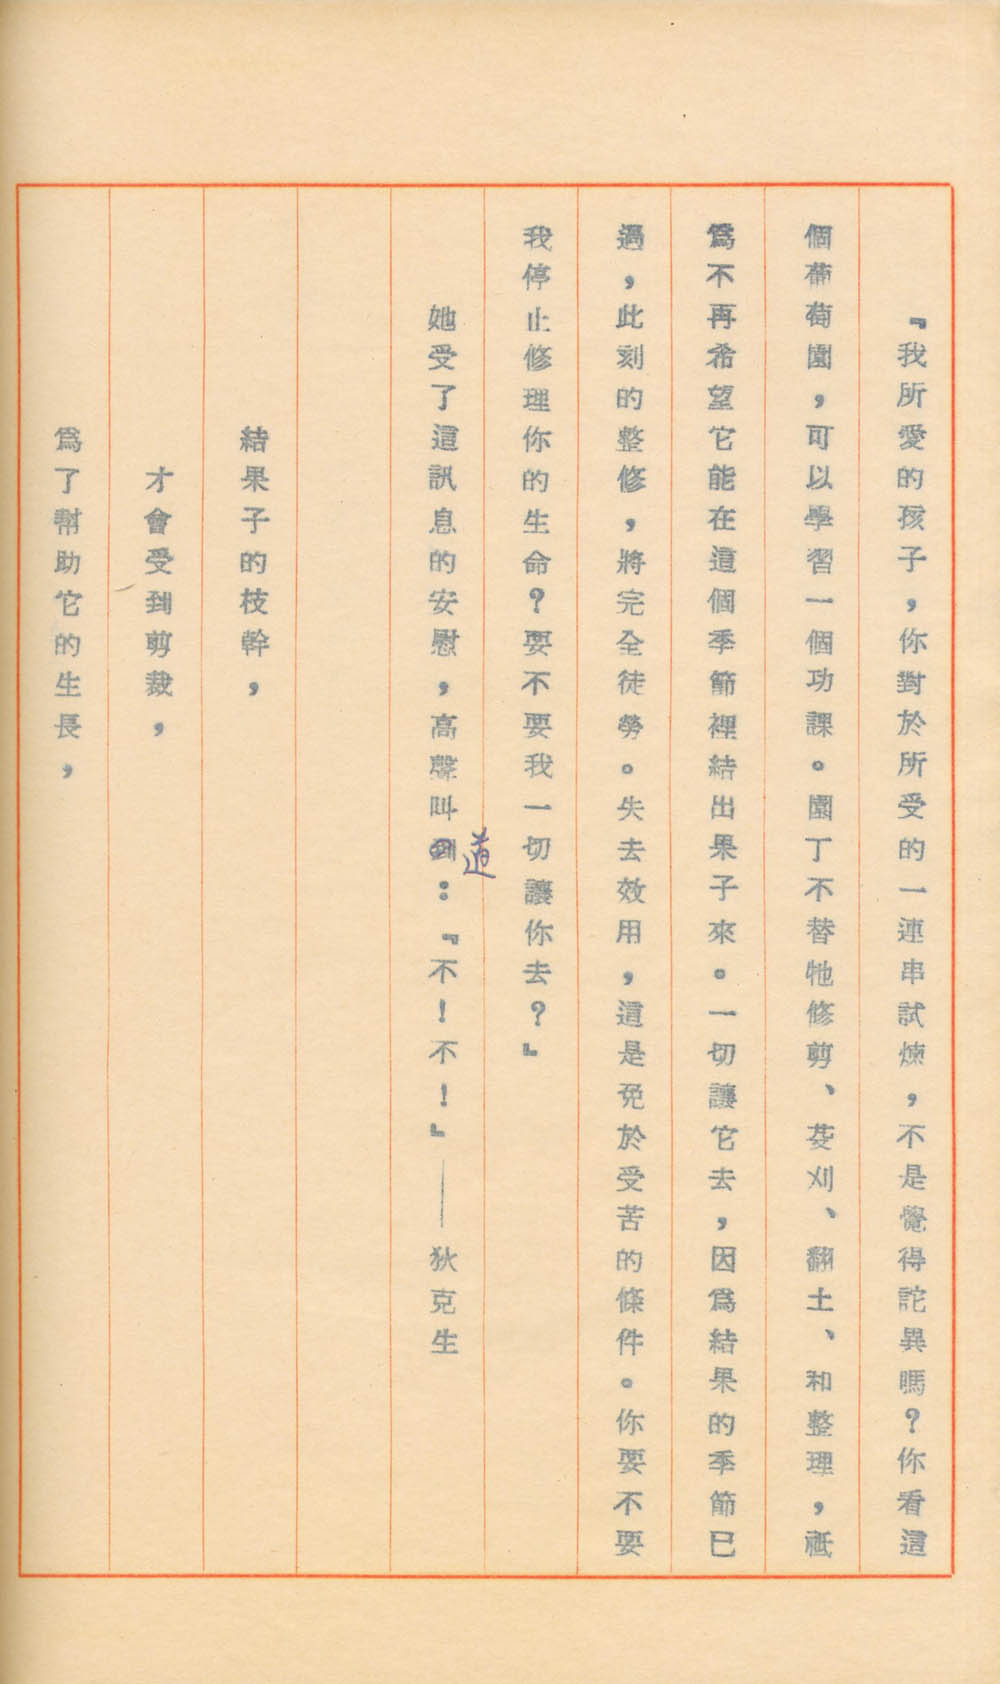 『我所愛的孩子，你對於所受的一連串試煉，不是覺得詫異嗎？你看這
個葡萄園，可以學習一個功課。園丁不替牠修剪、芟刈、翻土、和整理，祗
爲不再希望它能在這個季節裡結出果子來。一切讓它去，因爲結果的季節已
過，此刻的整修，將完全徒勞。失去效用，這是免於受苦的條件。你要不要
我停止修理你的生命？要不要我一切讓你去？』
她受了這訊息的安慰，高聲叫到道：『不！不！』——狄克生
結果子的枝幹，
才會受到剪裁，
爲了幫助它的生長，